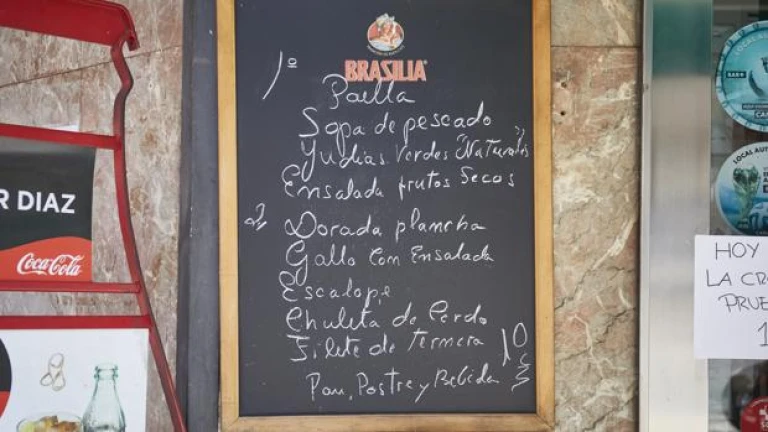 BRASILIA
1º
Paella
Sopa de pescado
Yudias verdes "Naturales"
Ensalada frutos Secos
2º
Dorada plancha
Gallo con Ensalada
Escalope
Chuleta de Cerdo
Filete de Ternera
10€
Pan, Postre y Bebida
R DIAZ
Coca-Cola
LOCAL AUT
BAR
LOCAL AUT
HOY
LA CR
PRUE
1